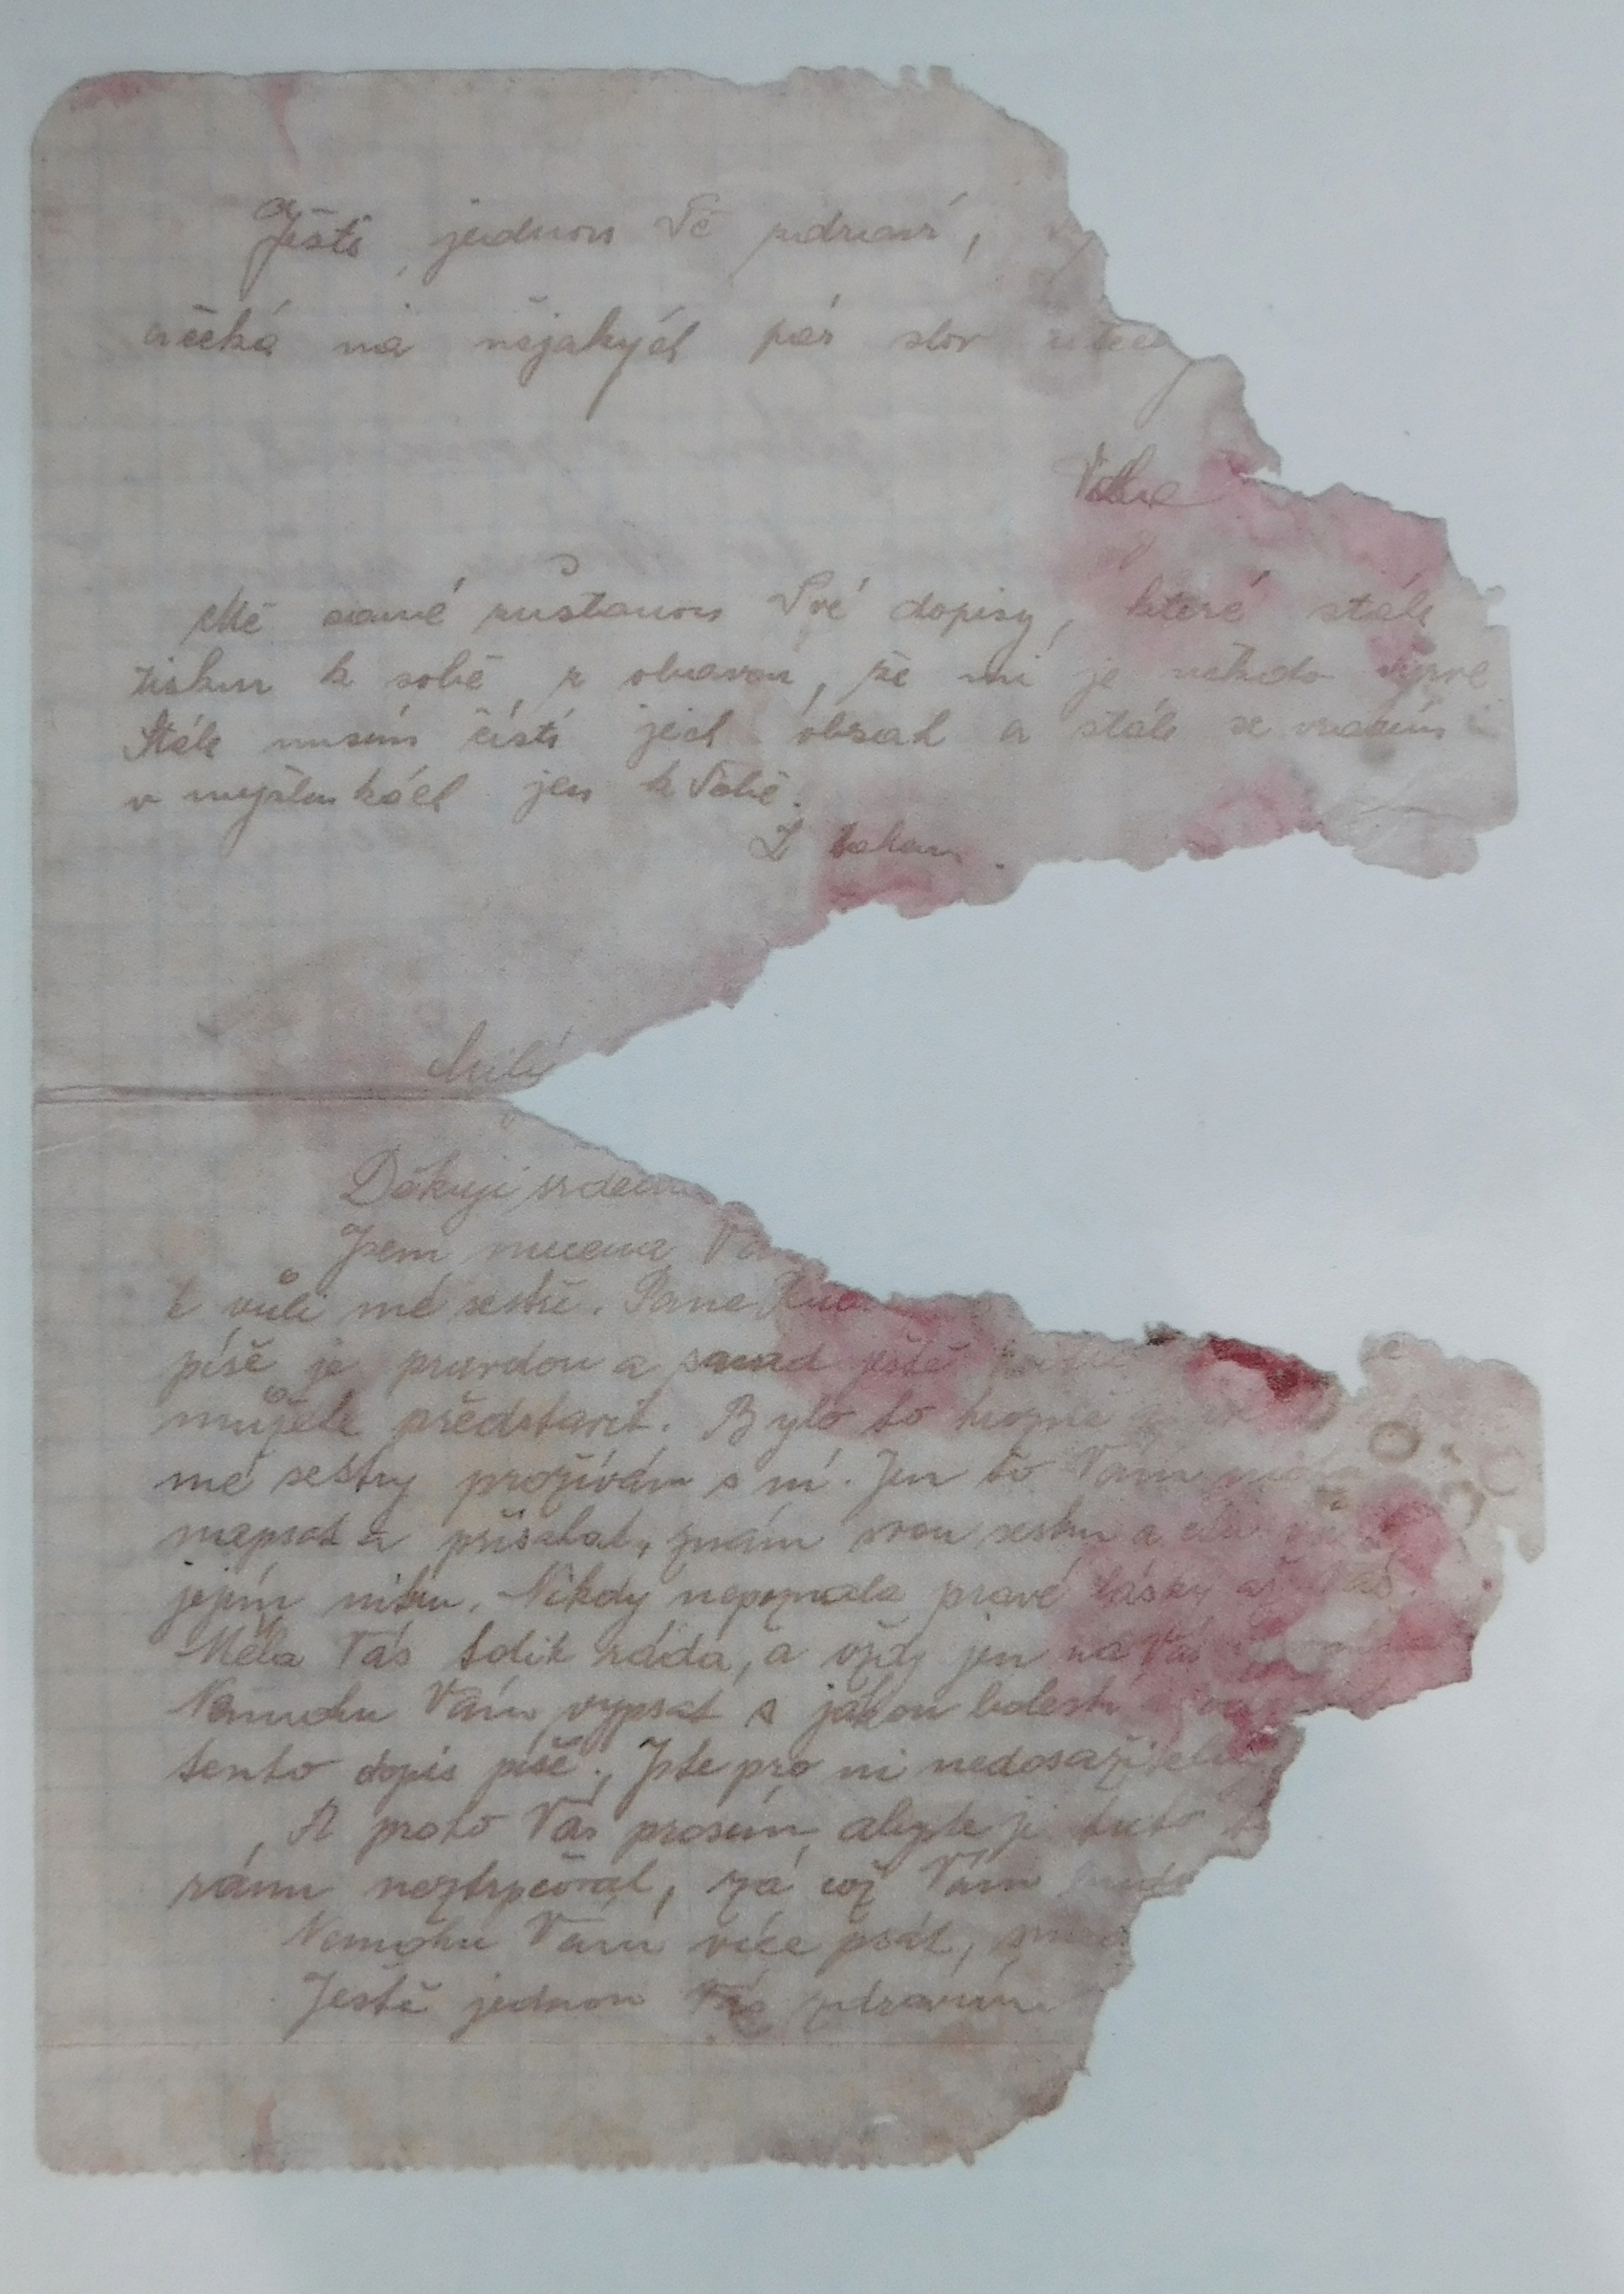 Ještě jednou Tě zdraví,
a čeká na nějakých pár slov
Mě samé zůstanou Tvé dopisy, které stále
tisknu k sobě z obavou, že mi je někdo
Stále musím čísti jich obsah a stále se vracím
v myšlenkách jen k Tobě.
S bohem.
Milý
Děkuji srdečn
Jsem nucena Vá
k vůli mé sestře. Pane
píše je pravdou a snad ještě
můžete představit. Bylo to hrozné
mé sestry prožívám s ní. Jen to Vám
napsat a přísahat, znám svou sestru a
jejím nitru. Nikdy nepoznala pravé lásky až Vás.
Měla Vás tolik ráda, a vždy jen na Vás
Nemohu Vám vypsat s jakou bolestí
tento dopis píše. Jste pro ni nedosažitelný
A proto Vás prosím, abyste jí tuto
ránu neztrpčoval, za což Vám bude
Nemohu Vám více psát,
Ještě jednou Vás zdravím